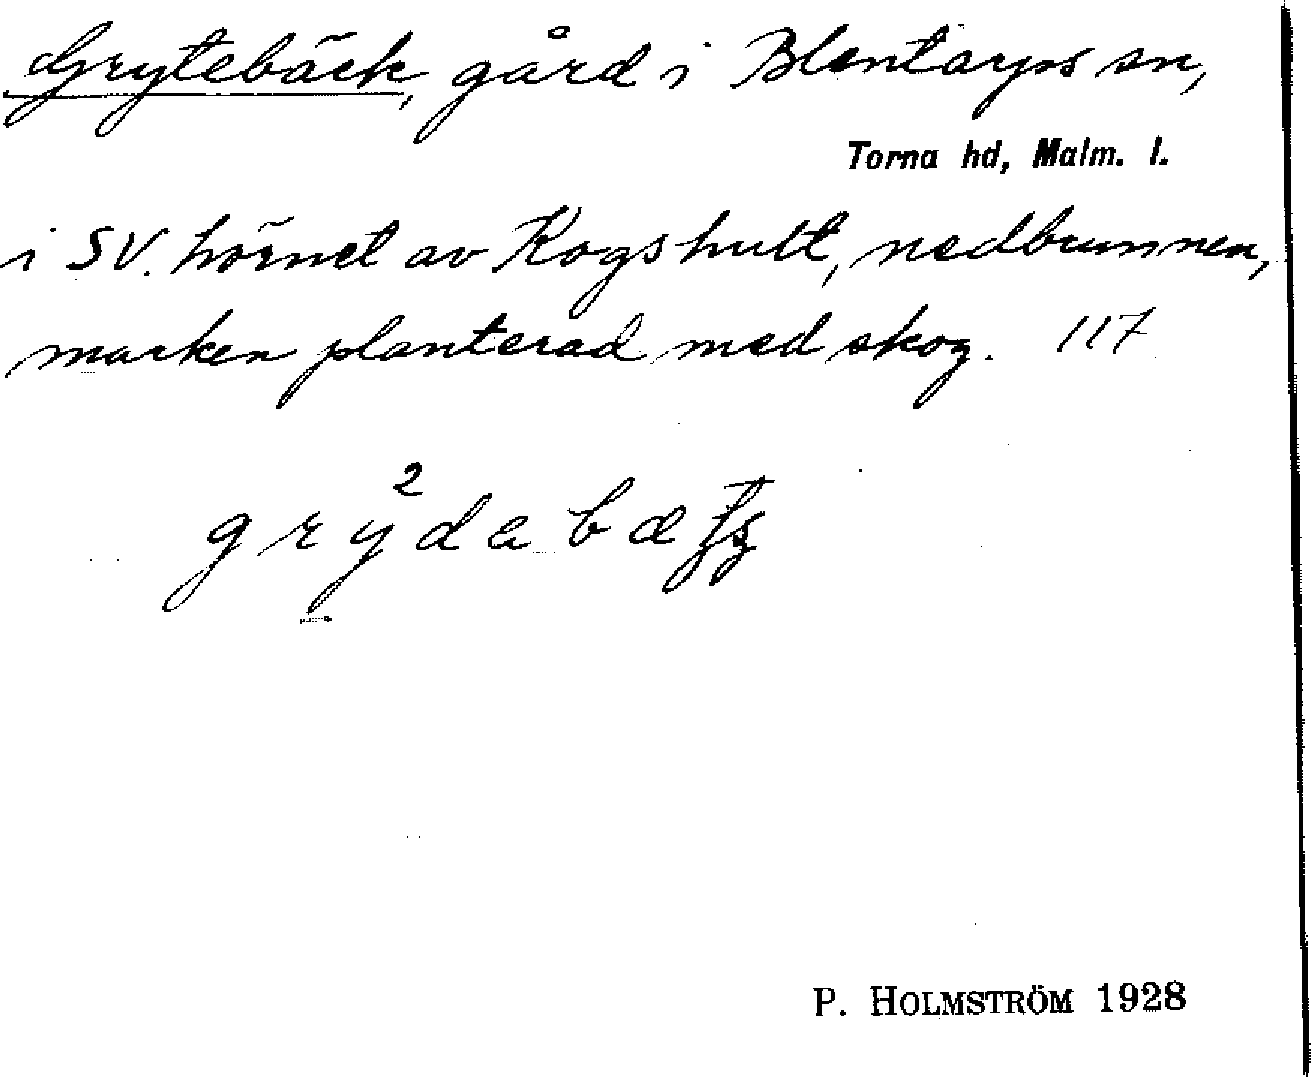 Grytebäck, gård i Blentarps sn,
Torna hd, Malm. l.
i SV. hörnet av Kogshult, nedbrunnen,
marken planterad med skog. 117
P. HOLMSTRÖM 1928